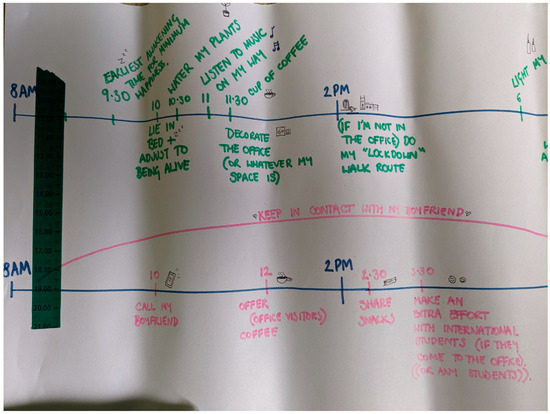 8AM
EARLIEST AWAKENING
TIME FOR MINIMUM
HAPPINESS.
9:30
WATER MY PLANTS
10:30
LISTEN TO MUSIC
ON MY WAY
11
CUP OF COFFEE
11:30
2PM
LIGHT MY
6
10
LIE IN
BED +
ADJUST TO
BEING ALIVE
DECORATE
THE OFFICE
(OR WHATEVER MY
SPACE IS)
(IF I'M NOT IN
THE OFFICE) DO
MY "LOCKDOWN"
WALK ROUTE
KEEP IN CONTACT WITH MY BOYFRIEND
8AM
2PM
10
CALL MY
BOYFRIEND
12
OFFER
(OFFICE VISITORS)
COFFEE
2:30
SHARE
SNACKS
3:30
MAKE AN
EXTRA EFFORT
WITH INTERNATIONAL
STUDENTS (IF THEY
COME TO THE OFFICE).
(OR ANY STUDENTS)).